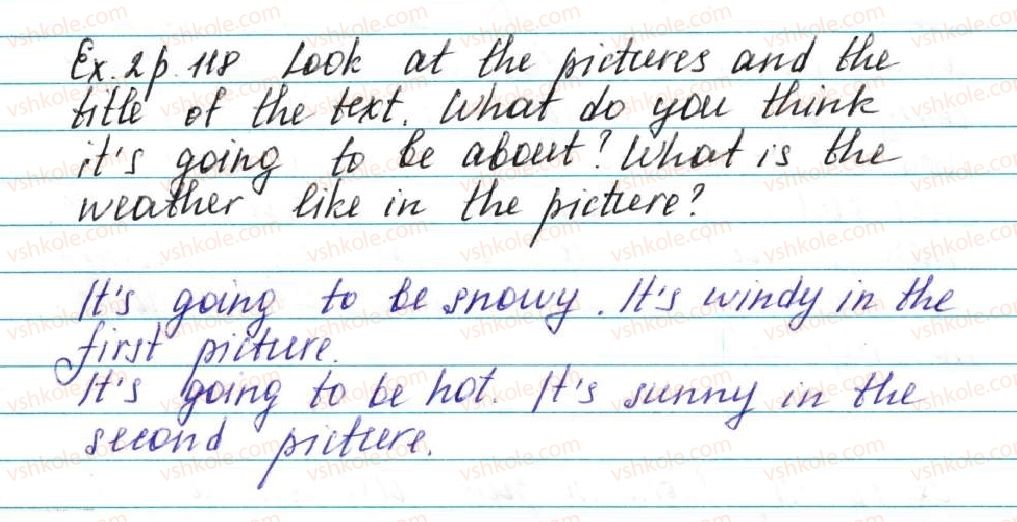 Ex. 2 p. 118 Look at the pictures and the
title of the text. What do you think
it's going to be about? What is the
weather like in the picture?
It's going to be snowy. It's windy in the
first picture.
It's going to be hot. It's sunny in the
second picture.